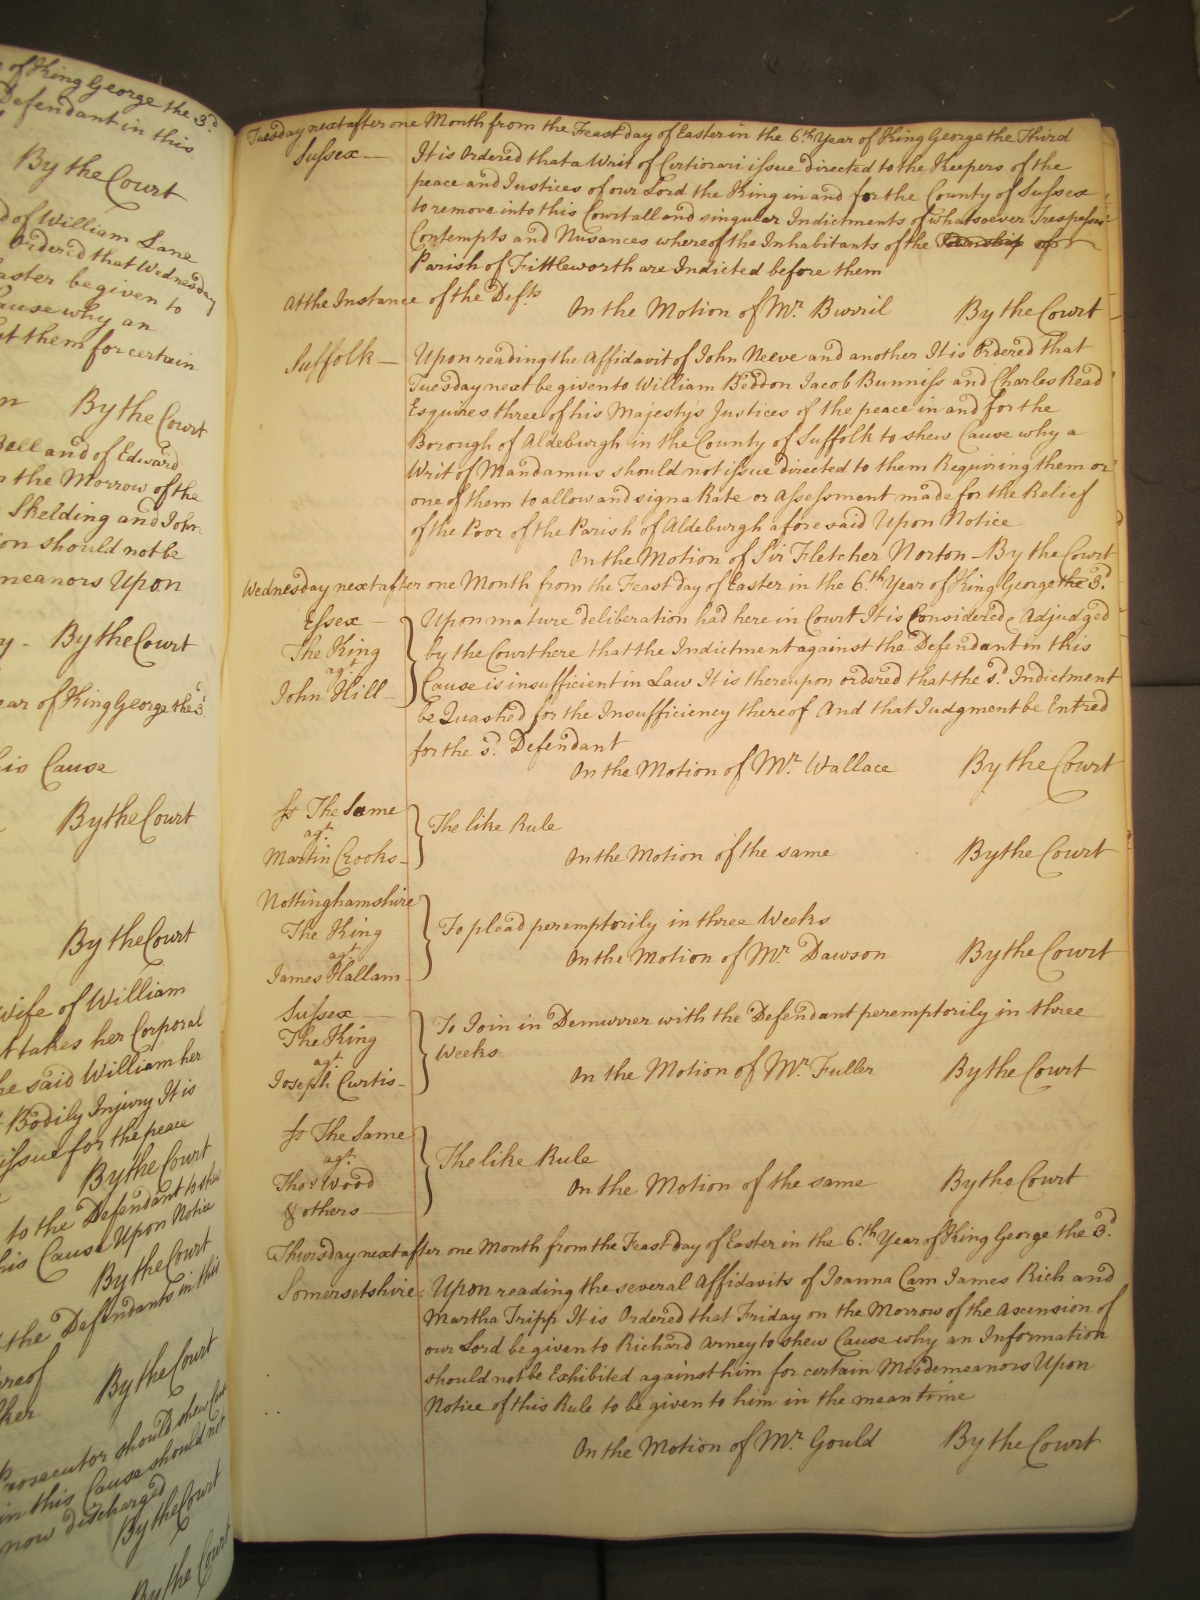 of King George the 3d.
Defendant in this
By the Court
d of William Lane
Ordered that Wednesday
Easter be given to
Cause why an
st them for certain
By the Court
Bell and of Edward
the Morrow of the
Skelding and John
on should not be
meanors Upon
y - By the Court
ear of King George the 3d
his Cause
By the Court
By the Court
wife of William
t takes her Corporal
he said William her
Bodily Injury It is
issue for the peace
By the Court
to the Defendant to shew
his Cause Upon Notice
By the Court
the Defendants in this
ereof
By the Court
Prosecutor should shew Cause
in this Cause should not
now discharged
By the Court
By the Court
Tuesday next after one Month from the Feast day of Easter in the 6.th Year of King George the Third
Sussex — It is Ordered that a Writ of Certiorari issue directed to the Keepers of the
peace and Justices of our Lord the King in and for the County of Sussex
to remove into this Court all and singular Indictments of whatsoever Trespasses
Contempts and Nusances whereof the Inhabitants of the Township of
Parish of Fittleworth are Indicted before them
At the Instance of the Defts On the Motion of Mr. Burril By the Court
Suffolk — Upon reading the Affidavit of John Neeve and another It is Ordered that
Tuesday next be given to William Beddon Jacob Bunniss and Charles Read
Esquires three of his Majestys Justices of the peace in and for the
Borough of Aldeburgh in the County of Suffolk to shew Cause why a
Writ of Mandamus should not issue directed to them Requiring them or
one of them to allow and sign a Rate or Assessment made for the Relief
of the Poor of the Parish of Aldeburgh aforesaid Upon Notice
On the Motion of Sir Fletcher Norton - By the Court
Wednesday next after one Month from the Feast day of Easter in the 6.th Year of King George the 3d.
Essex — Upon mature deliberation had here in Court It is Considered & Adjudged
The King by the Court here that the Indictment against the Defendant in this
agt.
John Hill — Cause is insufficient in Law It is thereupon ordered that the sd. Indictment
be Quashed for the Insufficiency thereof And that Judgment be Entred
for the sd. Defendant
On the Motion of Mr. Wallace By the Court
Is The Same
agt. The like Rule
Martin Crooks — On the Motion of the same By the Court
Nottinghamshire
The King To plead peremptorily in three Weeks
agt. On the Motion of Mr. Dawson By the Court
James Hallam
Sussex — To Join in Demurrer with the Defendant peremptorily in three
The King
agt. Weeks
Joseph Curtis — On the Motion of Mr. Fuller By the Court
Is The Same
agt. The like Rule
Thos Wood On the Motion of the same By the Court
& others —
Thursday next after one Month from the Feast day of Easter in the 6.th Year of King George the 3d.
Somersetshire. Upon reading the several Affidavits of Joanna Cam James Rich and
Martha Tripp It is Ordered that Friday on the Morrow of the Ascension of
our Lord be given to Richard Arney to shew Cause why an Information
should not be Exhibited against him for certain Misdemeanors Upon
Notice of this Rule to be given to him in the mean time
On the Motion of Mr. Gould By the Court